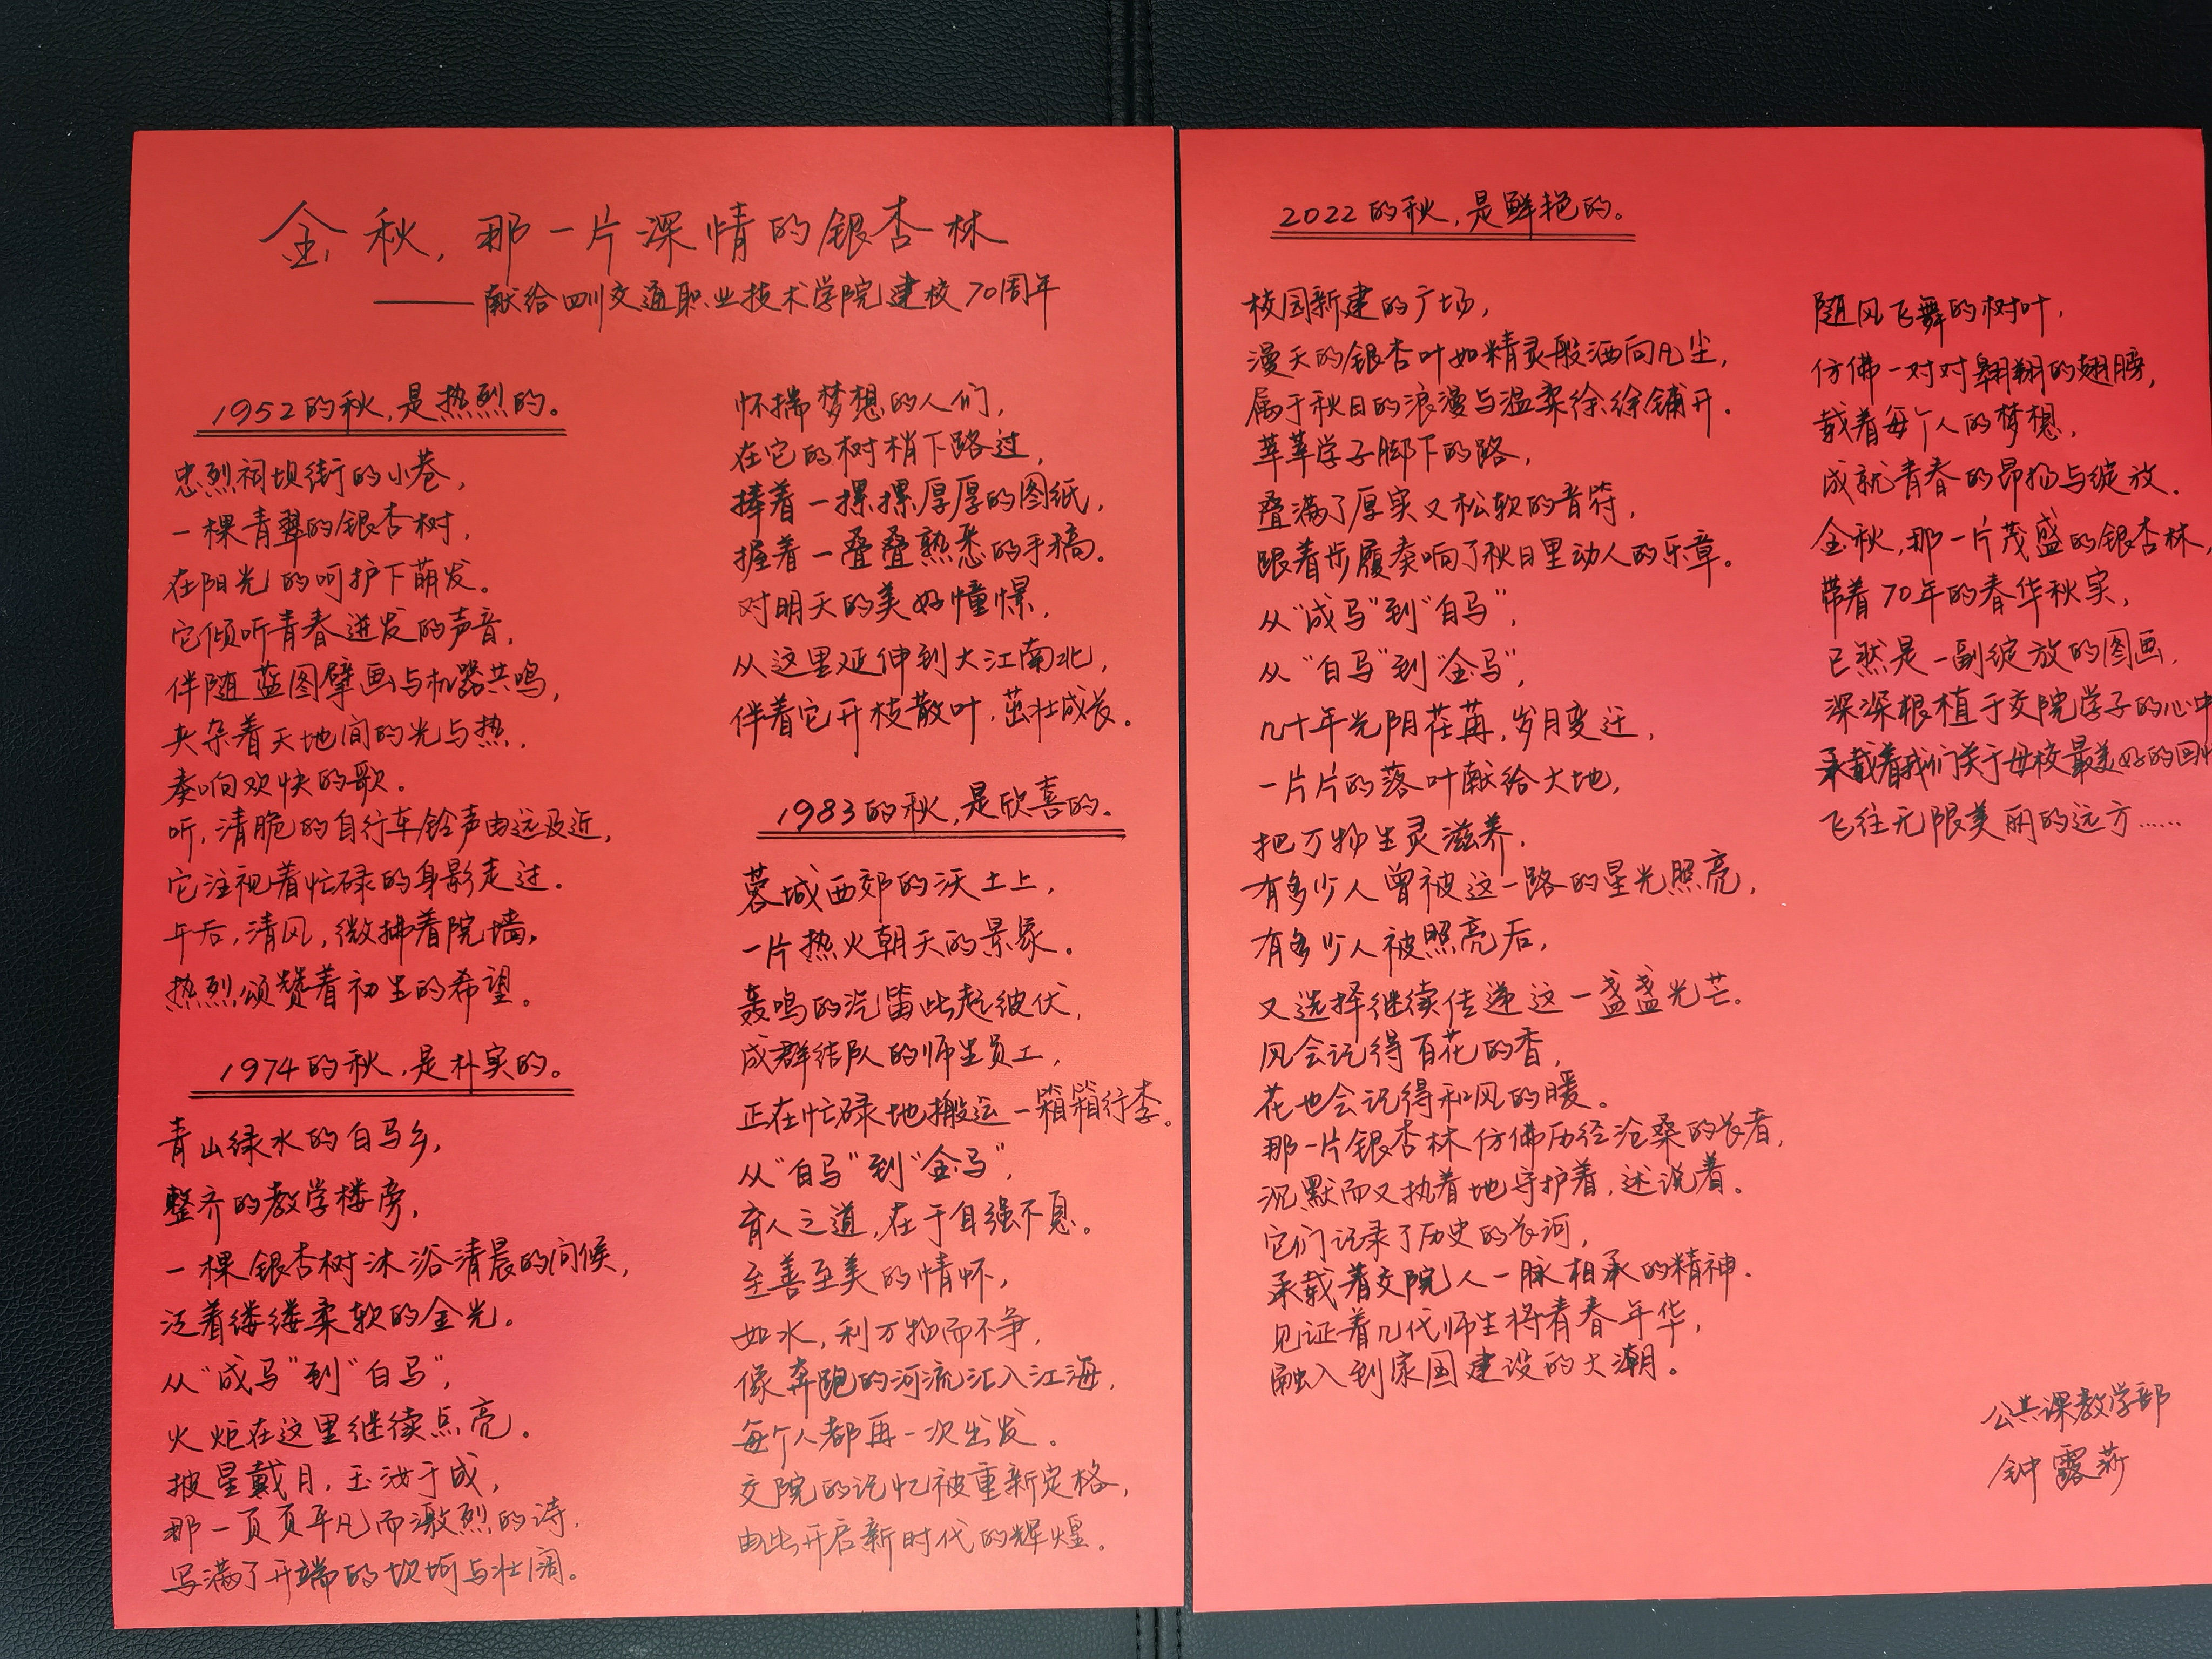 金秋，那一片深情的银杏林
——献给四川交通职业技术学院建校70周年
1952的秋，是热烈的。
忠烈祠坝街的小巷，
一棵青翠的银杏树，
在阳光的呵护下萌发。
它倾听青春迸发的声音，
伴随蓝图擘画与机器共鸣，
夹杂着天地间的光与热，
奏响欢快的歌。
听，清脆的自行车铃声由远及近，
它注视着忙碌的身影走过。
午后，清风，微拂着院墙，
热烈颂赞着初生的希望。
1974的秋，是朴实的。
青山绿水的白马乡，
整齐的教学楼旁，
一棵银杏树沐浴清晨的问候，
泛着缕缕柔软的金光。
从“成马”到“白马”，
火炬在这里继续点亮。
披星戴月，玉汝于成，
那一页页平凡而激烈的诗，
写满了开端的坎坷与壮阔。
怀揣梦想的人们，
在它的树梢下路过，
捧着一摞摞厚厚的图纸，
握着一叠叠熟悉的手稿。
对明天的美好憧憬，
从这里延伸到大江南北，
伴着它开枝散叶，茁壮成长。
1983的秋，是欣喜的。
蓉城西郊的沃土上，
一片热火朝天的景象。
轰鸣的汽笛此起彼伏，
成群结队的师生员工，
正在忙碌地搬运一箱箱行李。
从“白马”到“金马”，
育人之道，在于自强不息。
至善至美的情怀，
如水，利万物而不争，
像奔跑的河流汇入江海，
每个人都再一次出发。
交院的记忆被重新定格，
由此开启新时代的辉煌。
2022的秋，是鲜艳的。
校园新建的广场，
漫天的银杏叶如精灵般洒向凡尘，
属于秋日的浪漫与温柔徐徐铺开。
莘莘学子脚下的路，
叠满了厚实又松软的音符，
跟着步履奏响了秋日里动人的乐章。
从“成马”到“白马”，
从“白马”到“金马”，
几十年光阴荏苒，岁月变迁，
一片片的落叶献给大地，
把万物生灵滋养，
有多少人曾被这一路的星光照亮，
有多少人被照亮后，
又选择继续传递这一盏盏光芒。
风会记得百花的香，
花也会记得和风的暖。
那一片银杏林仿佛历经沧桑的长者，
沉默而又执着地守护着，述说着。
它们记录了历史的长河，
承载着交院人一脉相承的精神，
见证着几代师生将青春年华，
融入到家国建设的大潮。
随风飞舞的树叶，
仿佛一对对翱翔的翅膀，
载着每个人的梦想，
成就青春的昂扬与绽放。
金秋，那一片茂盛的银杏林，
带着70年的春华秋实，
已然是一副绽放的图画，
深深根植于交院学子的心中
承载着我们关于母校最美好的回
飞往无限美丽的远方……
公共课教学部
钟露莎